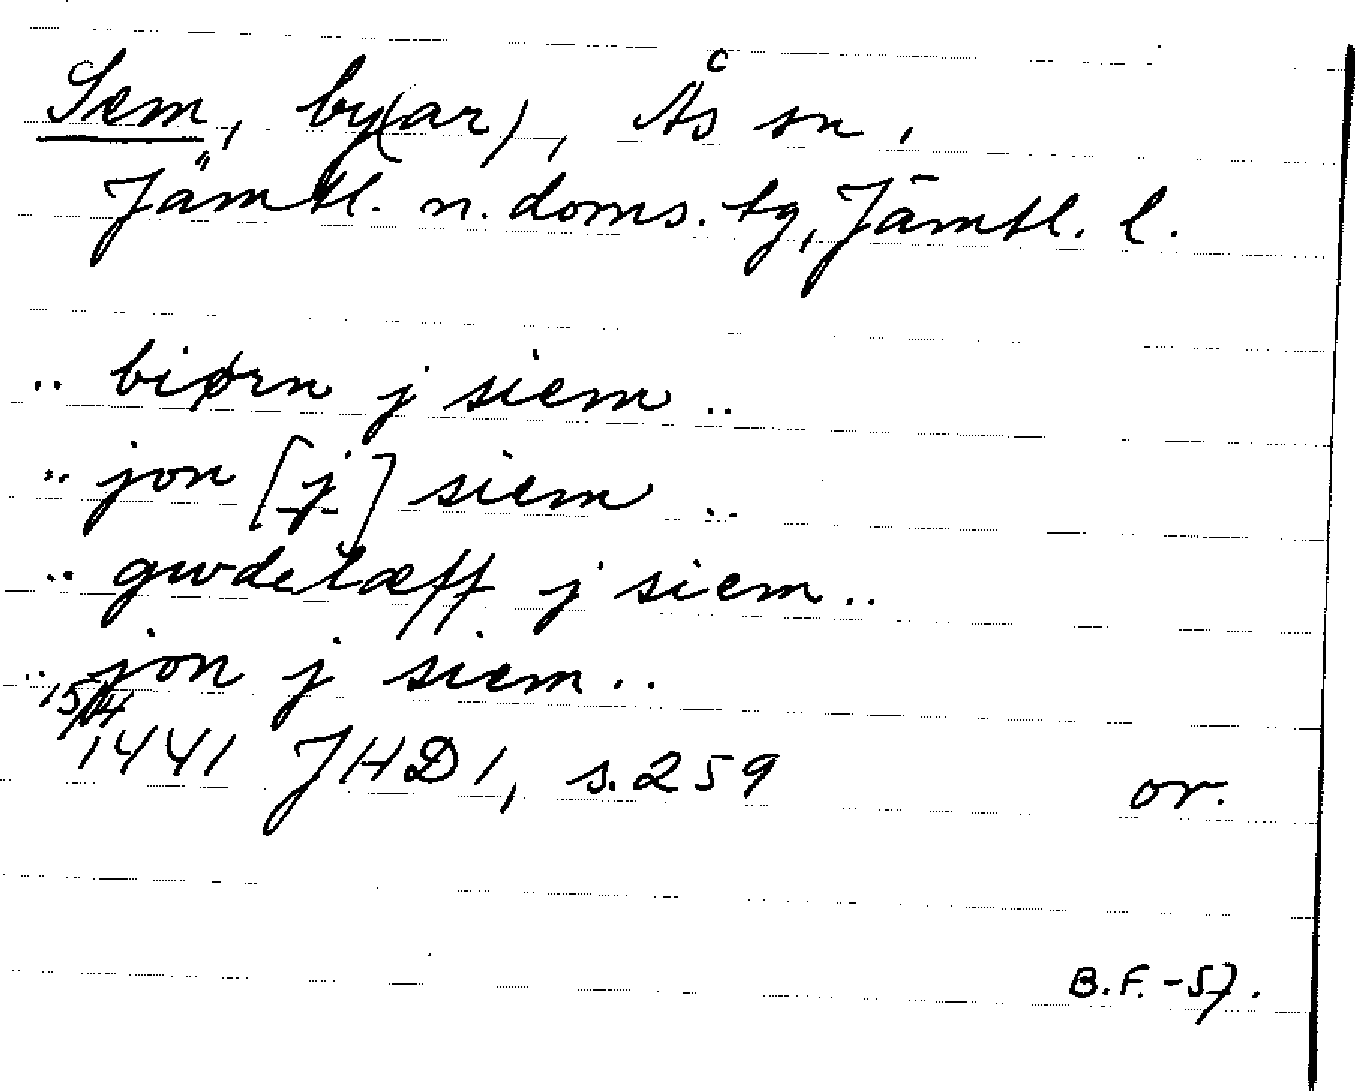 Sem, by(ar), Ås sn,
Jämtl. n. doms. tg, Jämtl. l.
.. biørn j siem ..
.. jon [j] siem ..
.. gwdelæff j siem ..
.. jon j siem ..
15/4
1441 JHD 1, s. 259 or.
B.F. -57.